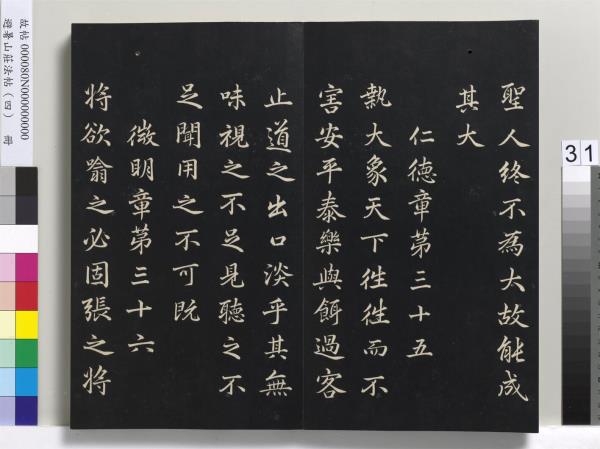 聖人終不為大故能成
其大
仁德章第三十五
執大象天下徃徃而不
害安平泰樂與餌過客
止道之出口淡乎其無
味視之不足見聽之不
足聞用之不可既
微明章第三十六
將欲噏之必固張之將
故帖 000080N000000000
避暑山莊法帖(四) 冊
31